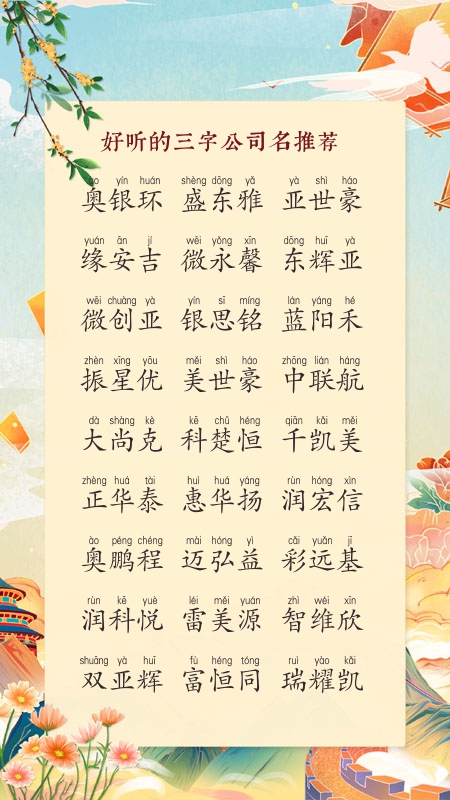 好听的三字公司名推荐
ào yín huán shèng dōng yǎ yà shì háo
奥银环 盛东雅 亚世豪
yuán ān jí wēi yǒng xīn dōng huī yà
缘安吉 微永馨 东辉亚
wēi chuàng yà yín sī míng lán yáng hé
微创亚 银思铭 蓝阳禾
zhèn xīng yōu měi shì háo zhōng lián háng
振星优 美世豪 中联航
dà shàng kè kē chǔ héng qiān kǎi měi
大尚克 科楚恒 千凯美
zhèng huá tài huì huá yáng rùn hóng xìn
正华泰 惠华扬 润宏信
ào péng chéng mài hóng yì cǎi yuǎn jī
奥鹏程 迈弘益 彩远基
rùn kē yuè léi měi yuán zhì wéi xīn
润科悦 雷美源 智维欣
shuāng yà huī fù héng tóng ruì yào kǎi
双亚辉 富恒同 瑞耀凯